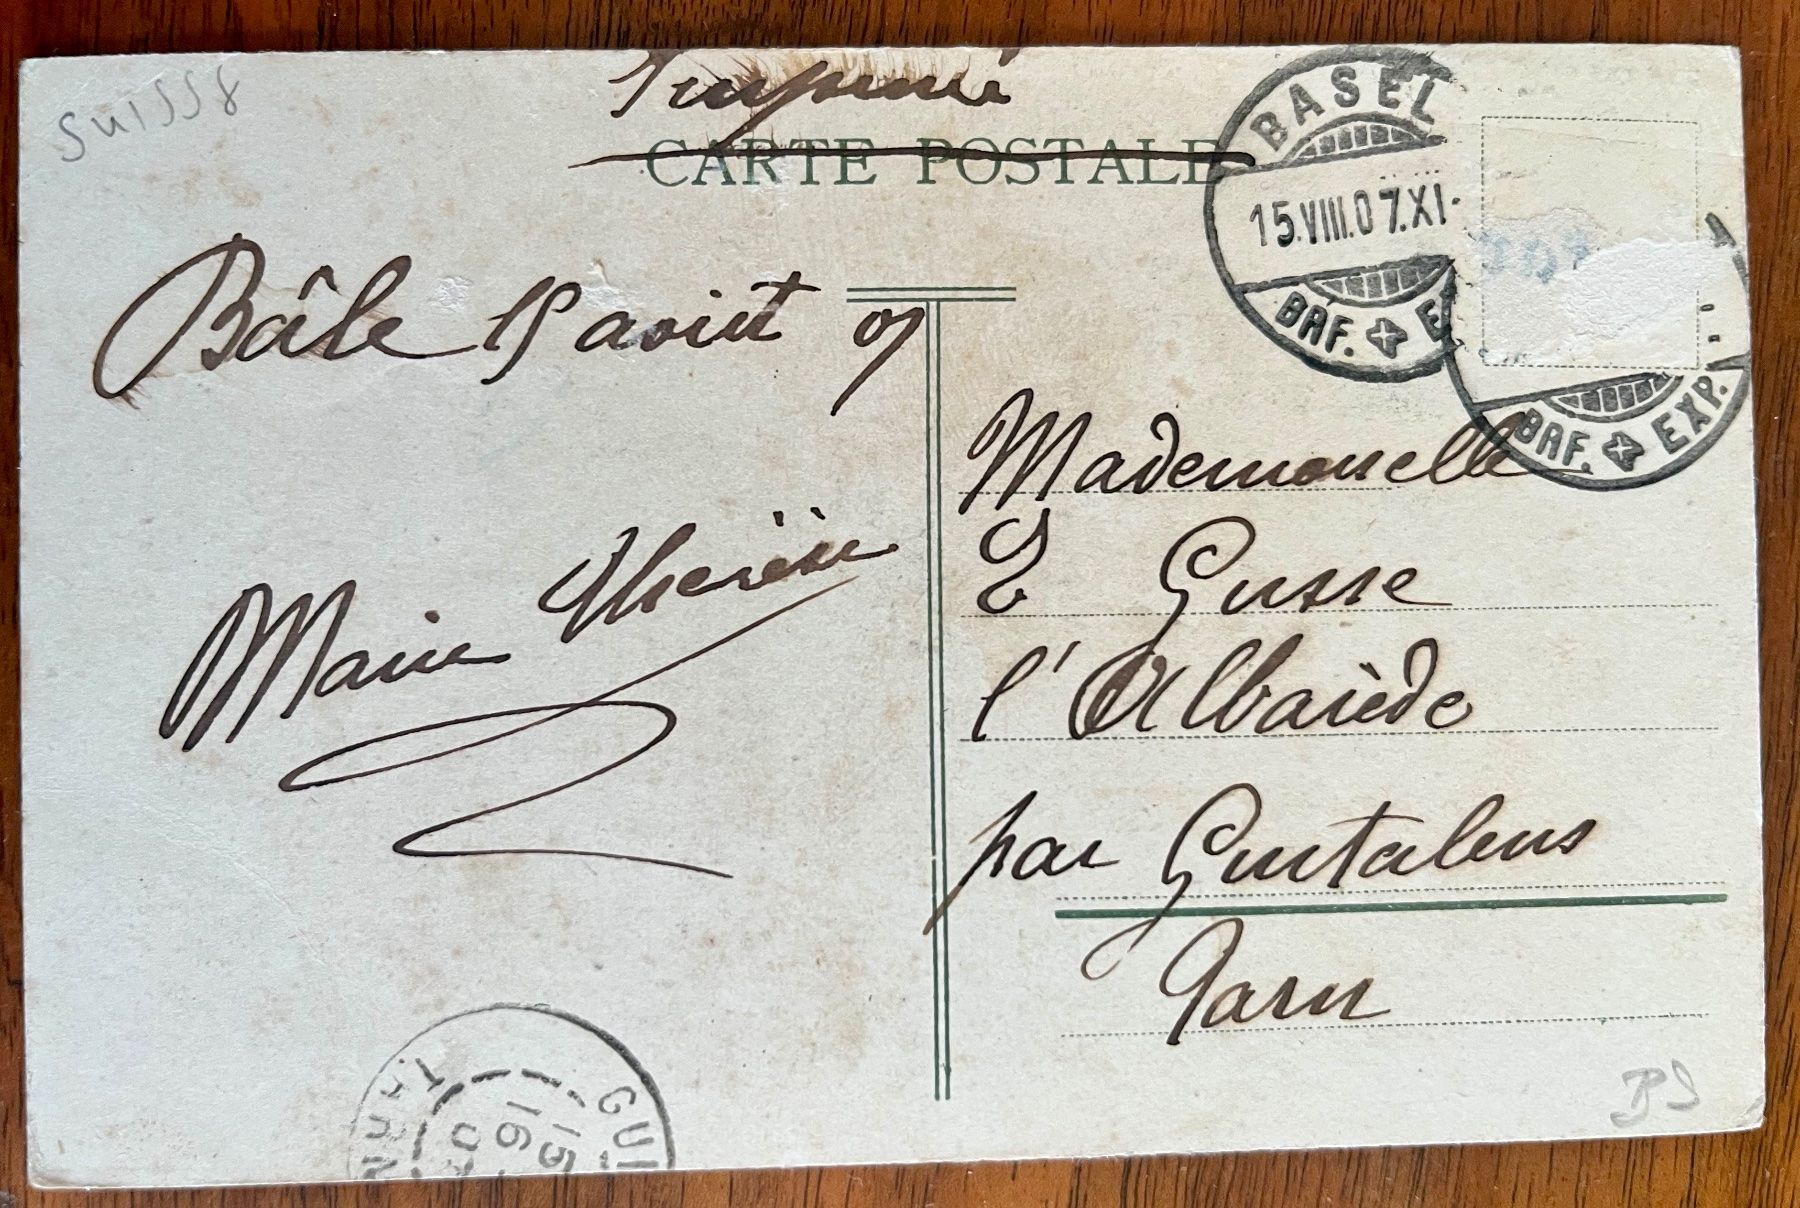 SUISSE
Imprimé
CARTE POSTALE
BASEL
15.VIII.07.XI-
BRF. EXP.
BRF. EXP.
Bâle 15 aout 07
Marie Therèse
Mademoiselle
E Gusse
l'Albarède
par Guitalens
Tarn
GUI
TARN
15
16
BS